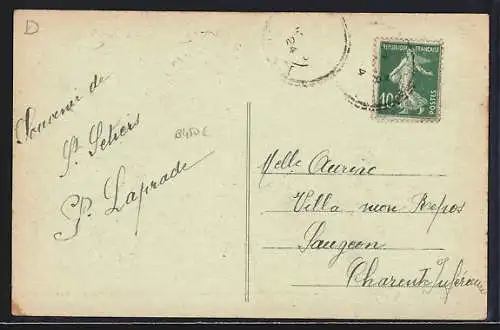 D
Souvenir de
St. Setiers
P. Laprade
24
REPUBLIQUE FRANÇAISE
10
POSTES
Melle Aurine
Villa mon Repos
Saugeon
Charente Inférieure